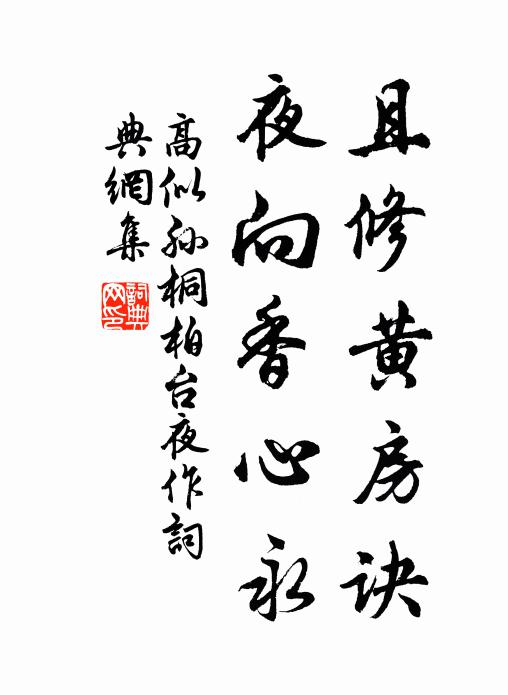 且修黄房訣
夜向香心永
高似孫桐柏台夜作詞
典網集
詞典
网印